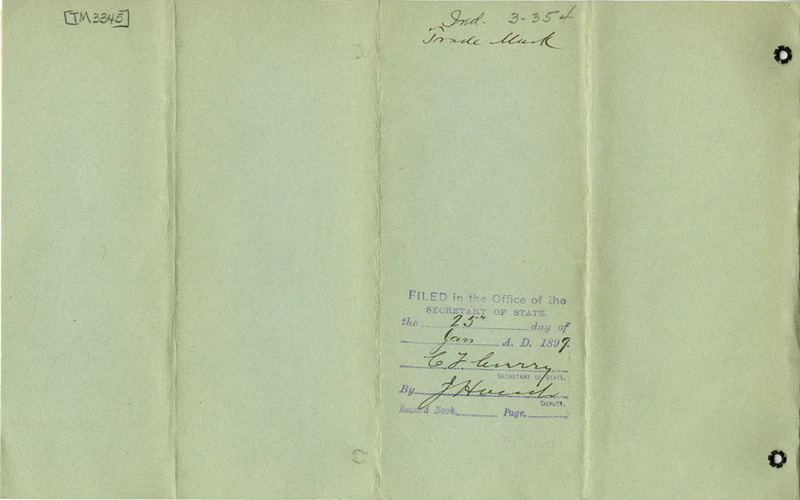 [TM3345]
Ind. 3-354
Trade Mark
FILED in the Office of the
SECRETARY OF STATE.
the 25" day of
Jan A. D. 1899.
C. F. Curry
SECRETARY OF STATE.
By J Hoesch
DEPUTY.
Record Book, Page,